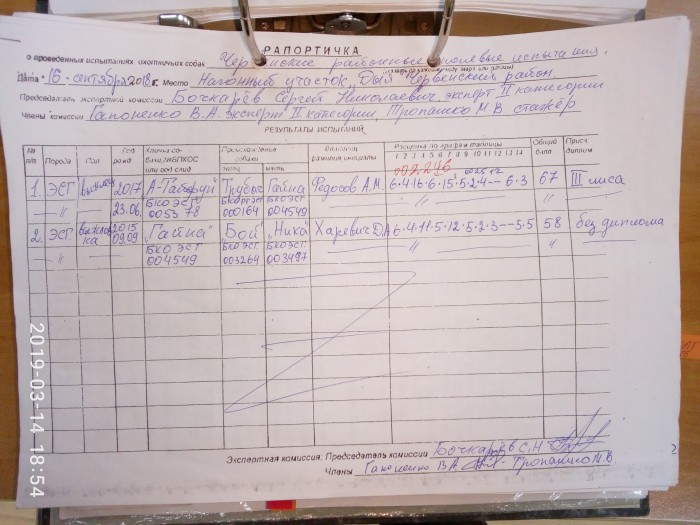 РАПОРТИЧКА
о проведенных испытаниях охотничьих собак Червенские районные полевые испытания.
Дата 16 сентября 2018 г. Место Нагонный участок, Червенский район
Председатель экспертной комиссии Бочкарёв Сергей Николаевич, эксперт II категории
Члены комиссии Гапоненко В.А. эксперт II категории, Тропашко М.В стажёр
РЕЗУЛЬТАТЫ ИСПЫТАНИЙ
№ п/п Порода Пол Год рожд Кличка собаки, №БПКОС или род свид Происхождение собаки отец мать Владелец фамилия инициалы Расценка по графам таблицы 1 2 3 4 5 6 7 8 9 10 11 12 13 14 Общий балл Присв. диплом
002246
1. ЭСГ 2017 А-Табаруй Трубач Гайна Федосов А.М. 6·4·16·6·15·5·2·4-- 6·3 67 III лиса
-"- 23.06. БКО ЭСГ 0053 78 БКО ЭСГ 000164 БКО ЭСГ 004549 -"- "
2. ЭСГ выжловка 2015 09.09 "Гайна" Бой "Ника" Харевич Д.А 6·4·11·5·12·5·2·3--5·5 58 без диплома
-"- БКО ЭСГ 004549 БКО ЭСГ 003264 БКО ЭСГ 003497 -"- "
Экспертная комиссия: Председатель комиссии Бочкарёв С.Н
Члены Гапоненко В.А. Тропашко М.В.
2
2019-03-14 18:54